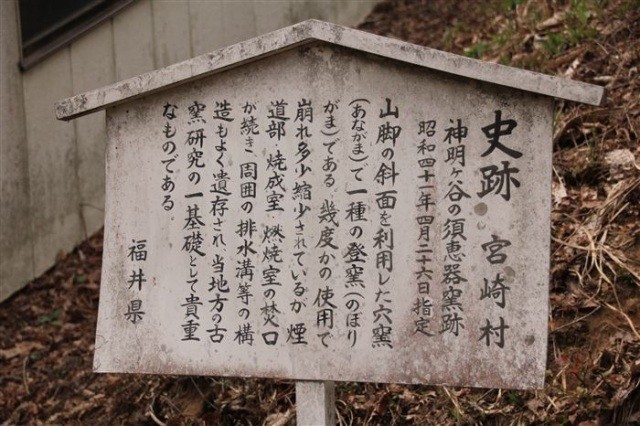 史跡 宮崎村
神明ヶ谷の須恵器窯跡
昭和四十一年四月二十六日指定
山脚の斜面を利用した穴窯
(あながま)て一種の登窯(のぼり
がま)である 幾度かの使用で
崩れ多少縮少されているが 煙
道部・焼成室・燃焼室の焚口
が続き 周囲の排水溝等の構
造もよく遺存され 当地方の古
窯研究の一基礎として貴重
なものである
福井県